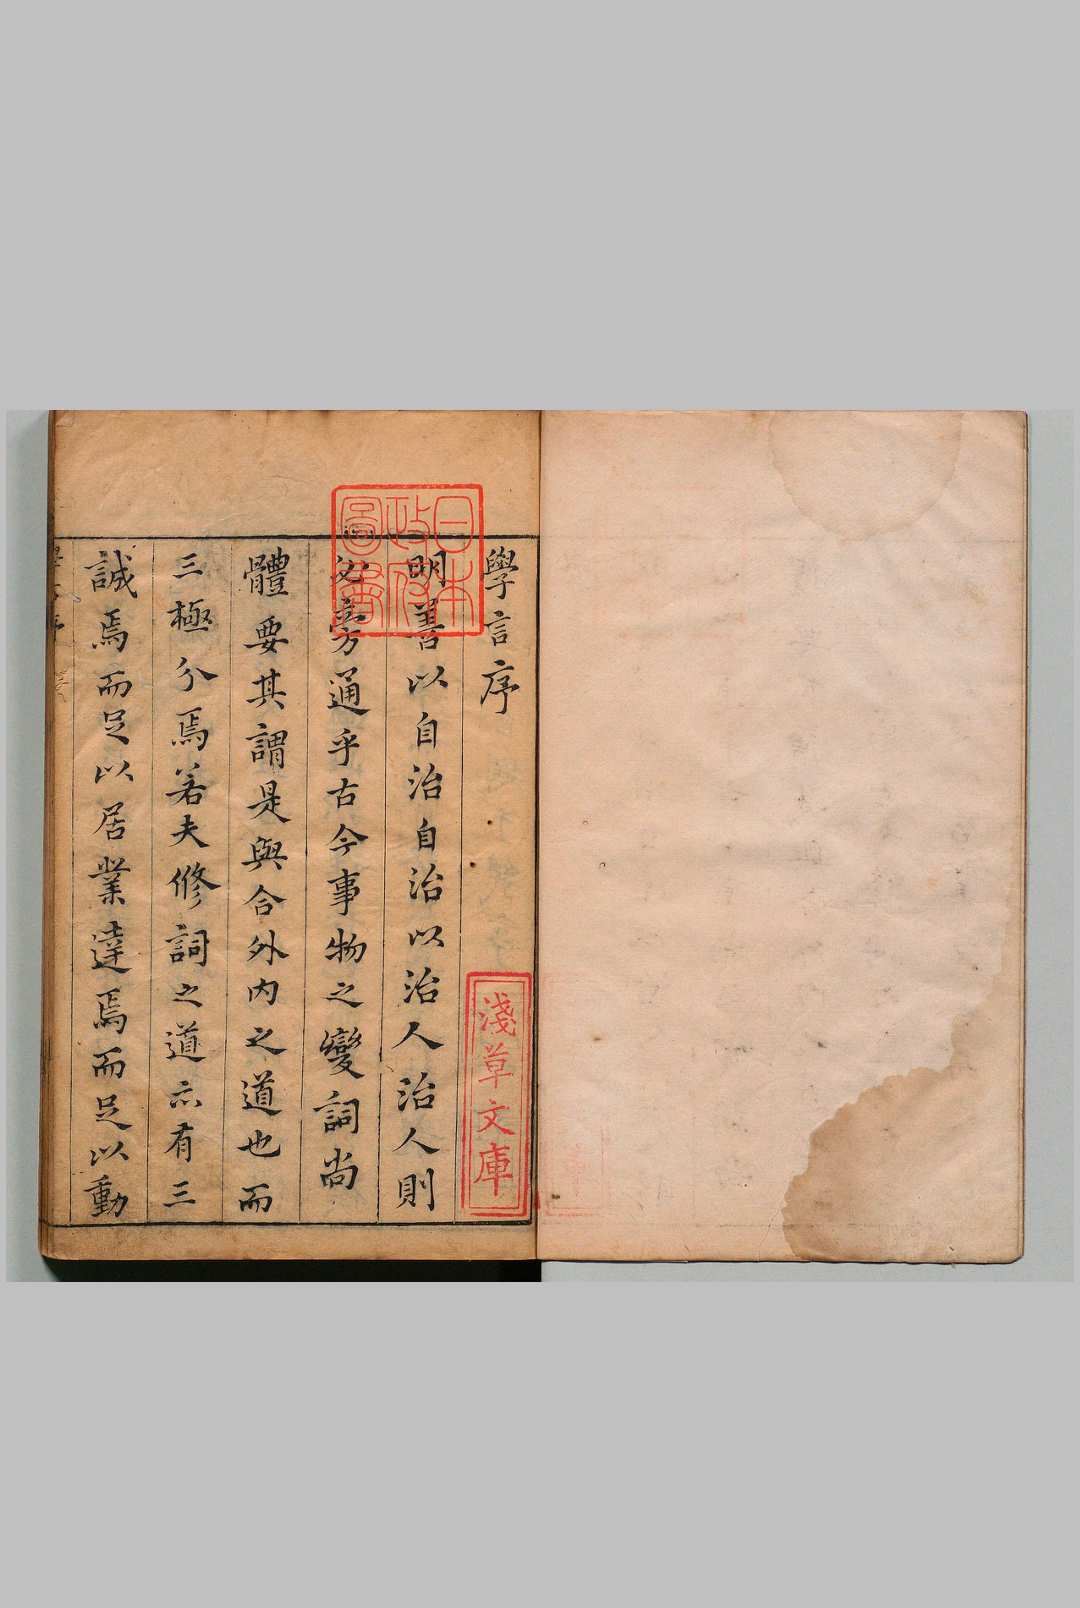 學言序
明善以自治自治以治人治人則
必旁通乎古今事物之變詞尚
體要其謂是與合外内之道也而
三極分焉若夫修詞之道亦有三
誠焉而足以居業達焉而足以動
日本
政府
圖書
淺草文庫